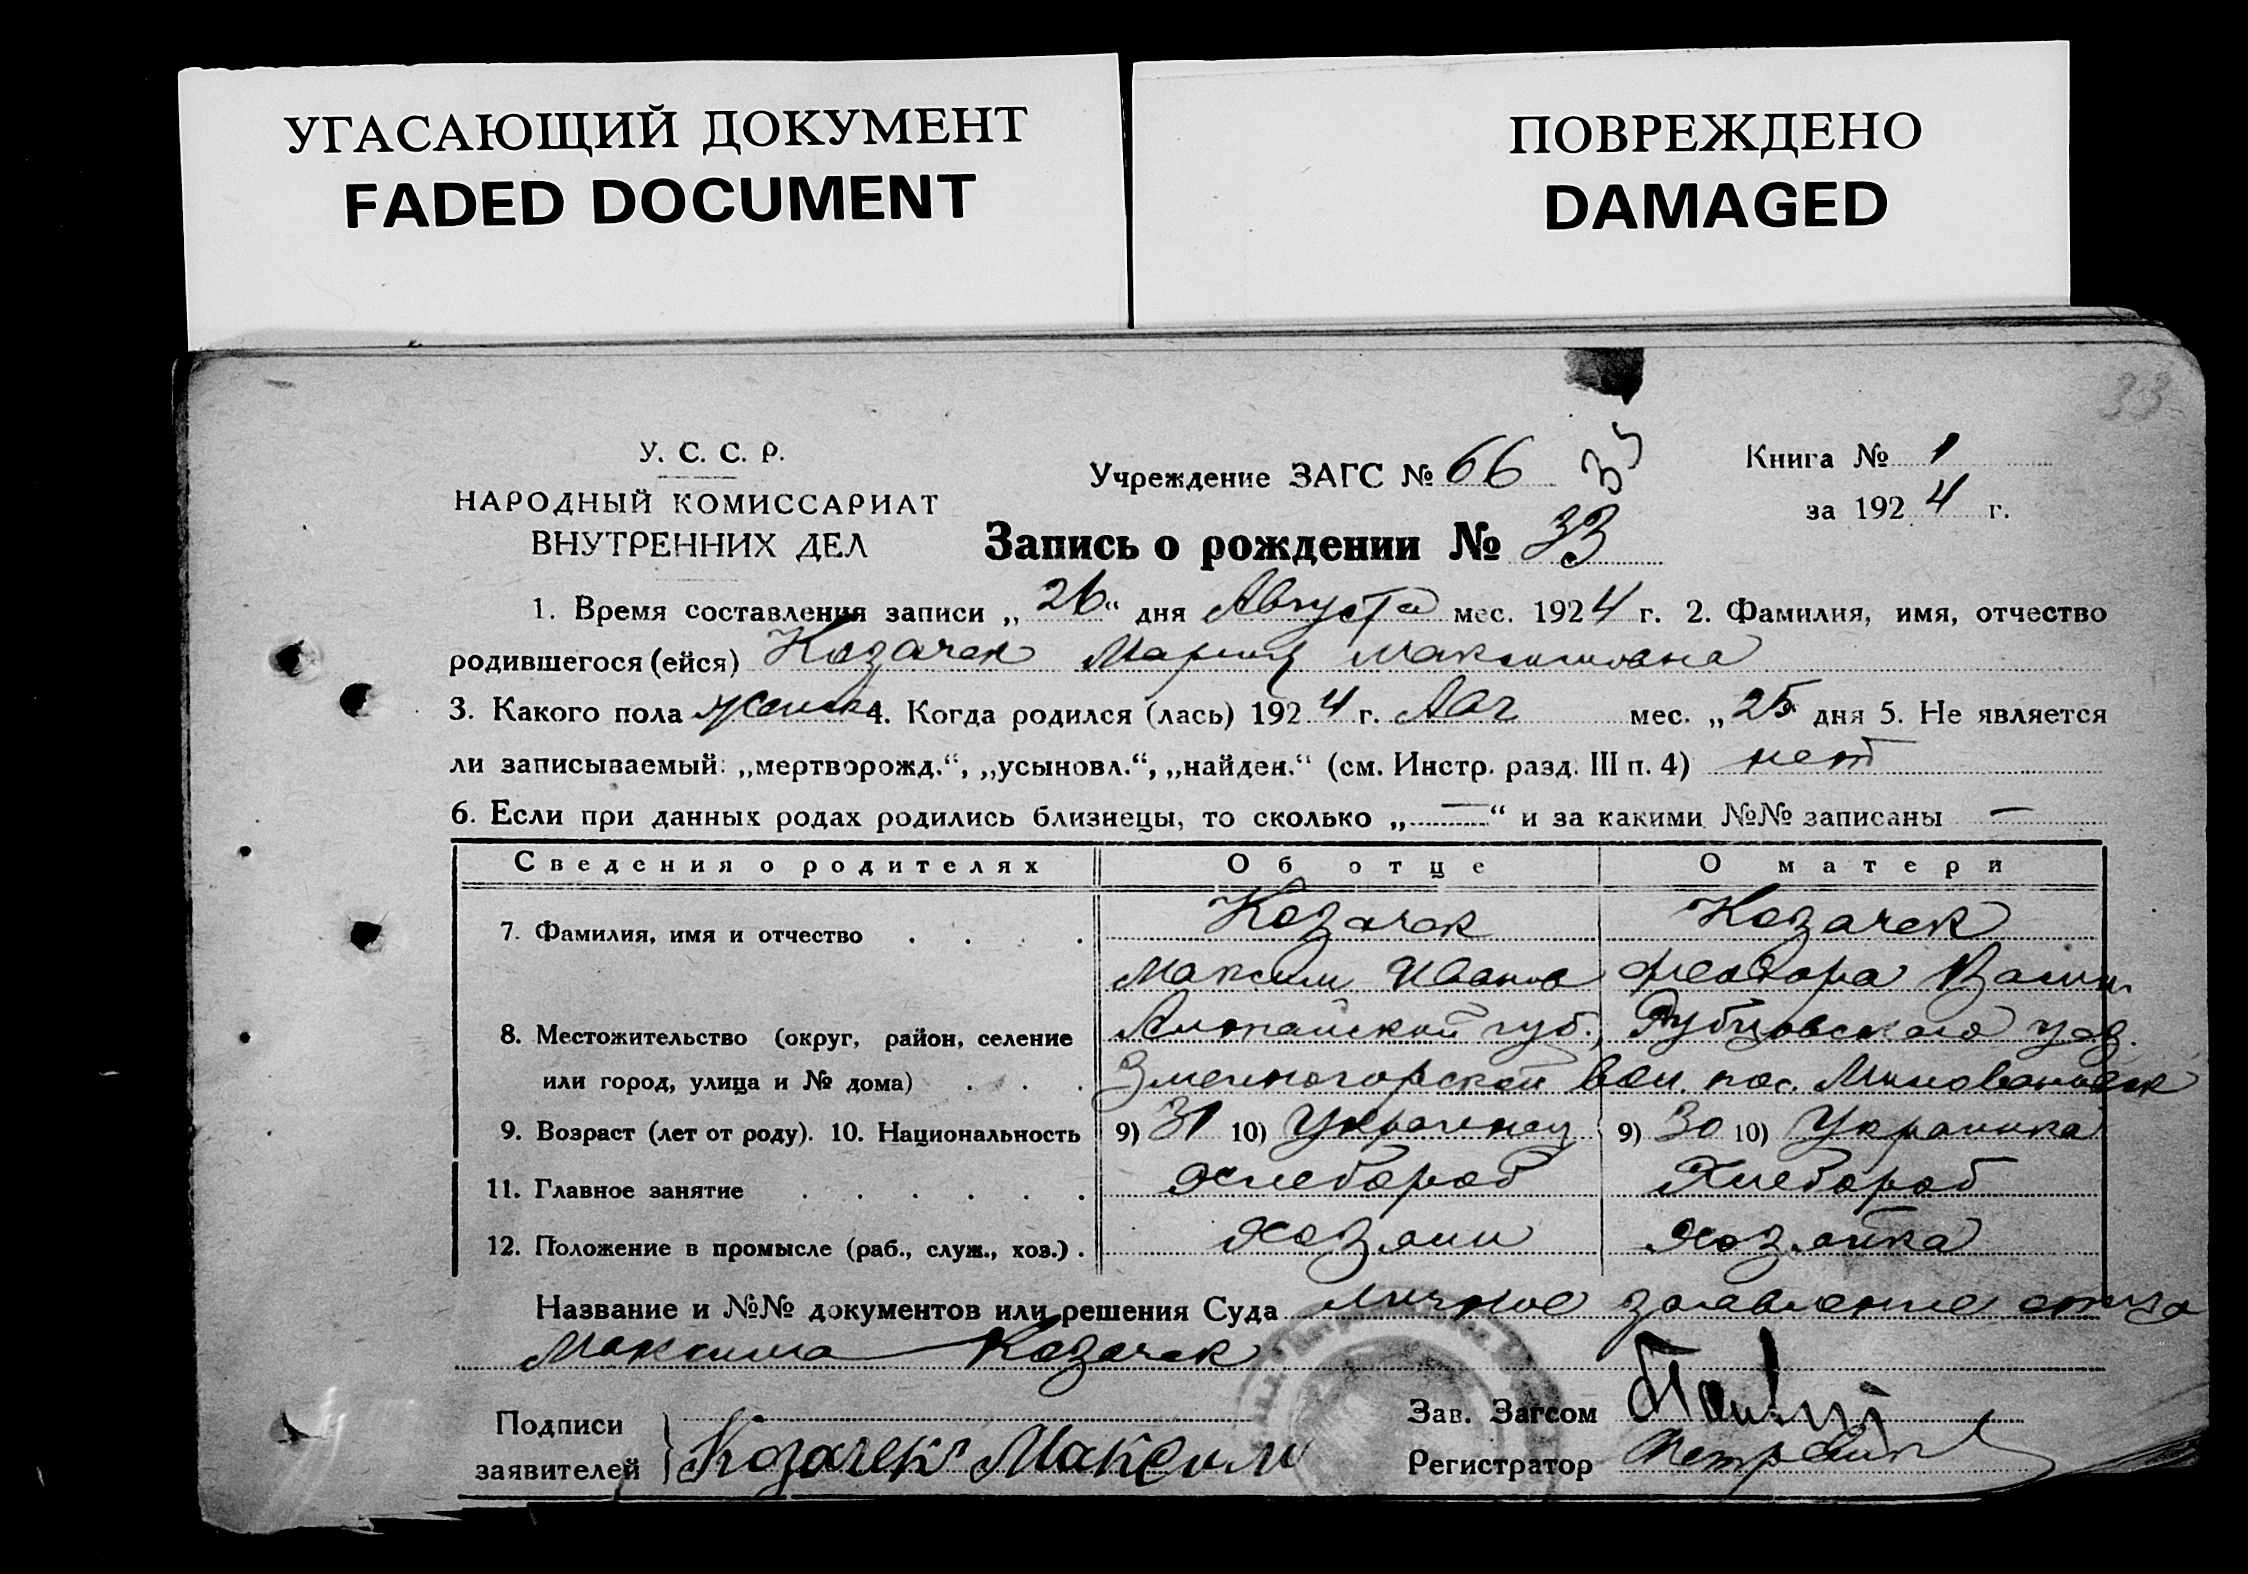 УГАСАЮЩИЙ ДОКУМЕНТ
FADED DOCUMENT
ПОВРЕЖДЕНО
DAMAGED
33
У. С. С. Р.
НАРОДНЫЙ КОМИССАРИАТ
ВНУТРЕННИХ ДЕЛ
Учреждение ЗАГС № 66
35
Книга № 1
за 1924 г.
Запись о рождении № 33
1. Время составления записи „26“ дня Августа мес. 1924 г. 2. Фамилия, имя, отчество
родившегося (ейся) Козачек Мария Максимовна
3. Какого пола женск 4. Когда родился (лась) 1924 г. Авг мес. „25 дня 5. Не является
ли записываемый: „мертворожд.“, „усыновл.“, „найден.“ (см. Инстр. разд. III п. 4) нет
6. Если при данных родах родились близнецы, то сколько „—“ и за какими №№ записаны —
Сведения о родителях Об отце О матери
7. Фамилия, имя и отчество . . . . Козачек Козачек
Максим Иванов Феодора Васил.
8. Местожительство (округ, район, селение Алтайской губ., Рубцовского уез.
или город, улица и № дома) . . . Змеиногорской вол. пос.
9. Возраст (лет от роду). 10. Национальность 9) 31 10) Украинец 9) 30 10) Украинка
11. Главное занятие . . . . . . Хлебороб Хлебороб
12. Положение в промысле (раб., служ., хоз.) . Хозяин Хозяйка
Название и №№ документов или решения Суда личное заявление отца
Максима Козачек
Подписи
заявителей } Козачек Максим
Зав. Загсом
Регистратор